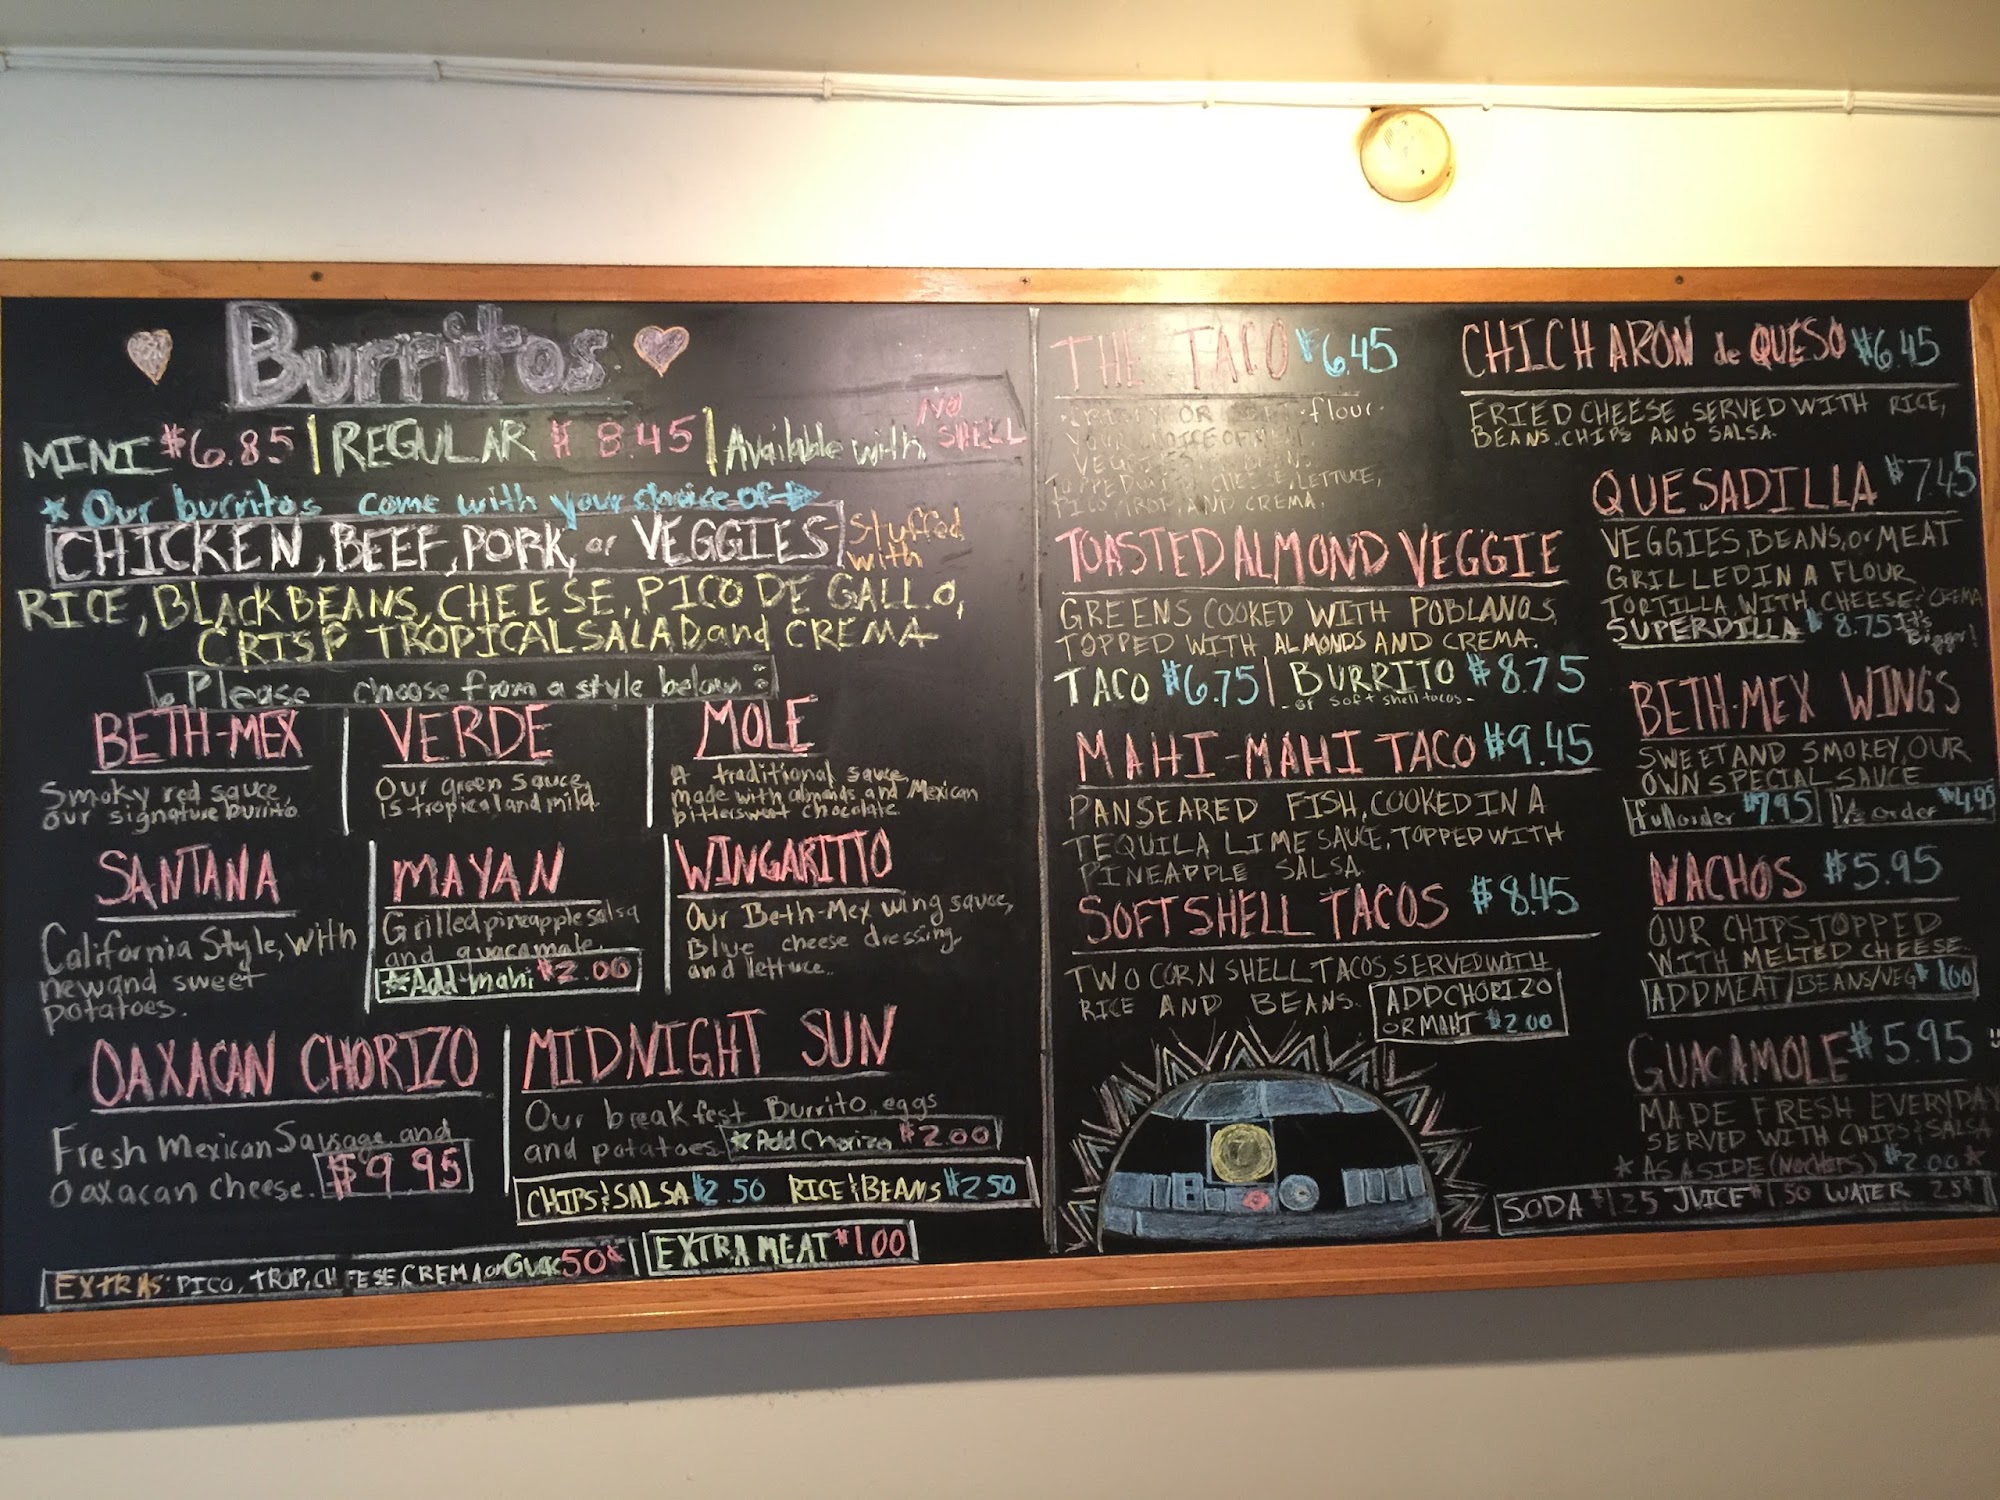 Burritos
MINI $6.85 | REGULAR $8.45 | Available with NO SHELL
* Our burritos come with your choice of
CHICKEN, BEEF, PORK, or VEGGIES - Stuffed with
RICE, BLACK BEANS, CHEESE, PICO DE GALLO,
CRISP TROPICAL SALAD, and CREMA
Please choose from a style below:
BETH-MEX
Smoky red sauce,
our signature burrito.
VERDE
Our green sauce,
is tropical and mild.
MOLE
A traditional sauce,
made with almonds and Mexican
bittersweet chocolate.
SANTANA
California Style, with
new and sweet
potatoes.
MAYAN
Grilled pineapple salsa
and guacamole.
*Add-mahi $2.00
WINGARITTO
Our Beth-Mex wing sauce,
Blue cheese dressing,
and lettuce.
OAXACAN CHORIZO
Fresh Mexican Sausage and
Oaxacan cheese. $9.95
MIDNIGHT SUN
Our breakfest Burrito, eggs
and potatoes. *Add Chorizo $2.00
CHIPS & SALSA $2.50 RICE & BEANS $2.50
EXTRAS: PICO, TROP, CHEESE, CREMA or Guac 50¢
EXTRA MEAT $1.00
THE TACO $6.45
OR flour.
TOPPED CHEESE, LETTUCE,
PICO, AND CREMA.
TOASTED ALMOND VEGGIE
GREENS COOKED WITH POBLANOS,
TOPPED WITH ALMONDS AND CREMA.
TACO $6.75 | BURRITO $8.75
- or soft shell tacos -
MAHI-MAHI TACO $9.45
PANSEARED FISH, COOKED IN A
TEQUILA LIME SAUCE, TOPPED WITH
PINEAPPLE SALSA.
SOFT SHELL TACOS $8.45
TWO CORN SHELL TACOS, SERVED WITH
RICE AND BEANS.
ADD CHORIZO
OR MAHI $2.00
CHICHARON de QUESO $6.45
FRIED CHEESE SERVED WITH RICE,
BEANS, CHIPS AND SALSA.
QUESADILLA $7.45
VEGGIES, BEANS, or MEAT
GRILLED IN A FLOUR
TORTILLA, WITH CHEESE & CREMA
SUPERDILLA $8.75 It's Bigger!
BETH-MEX WINGS
SWEET AND SMOKEY, OUR
OWN SPECIAL SAUCE
full order $7.95 1/2 order $4.95
NACHOS $5.95
OUR CHIPS TOPPED
WITH MELTED CHEESE.
ADD MEAT/BEANS/VEG $1.00
GUACAMOLE $5.95
MADE FRESH EVERYDAY
SERVED WITH CHIPS & SALSA
* AS A SIDE (No CHIPS) $2.00 *
SODA $1.25 JUICE $1.50 WATER 25¢